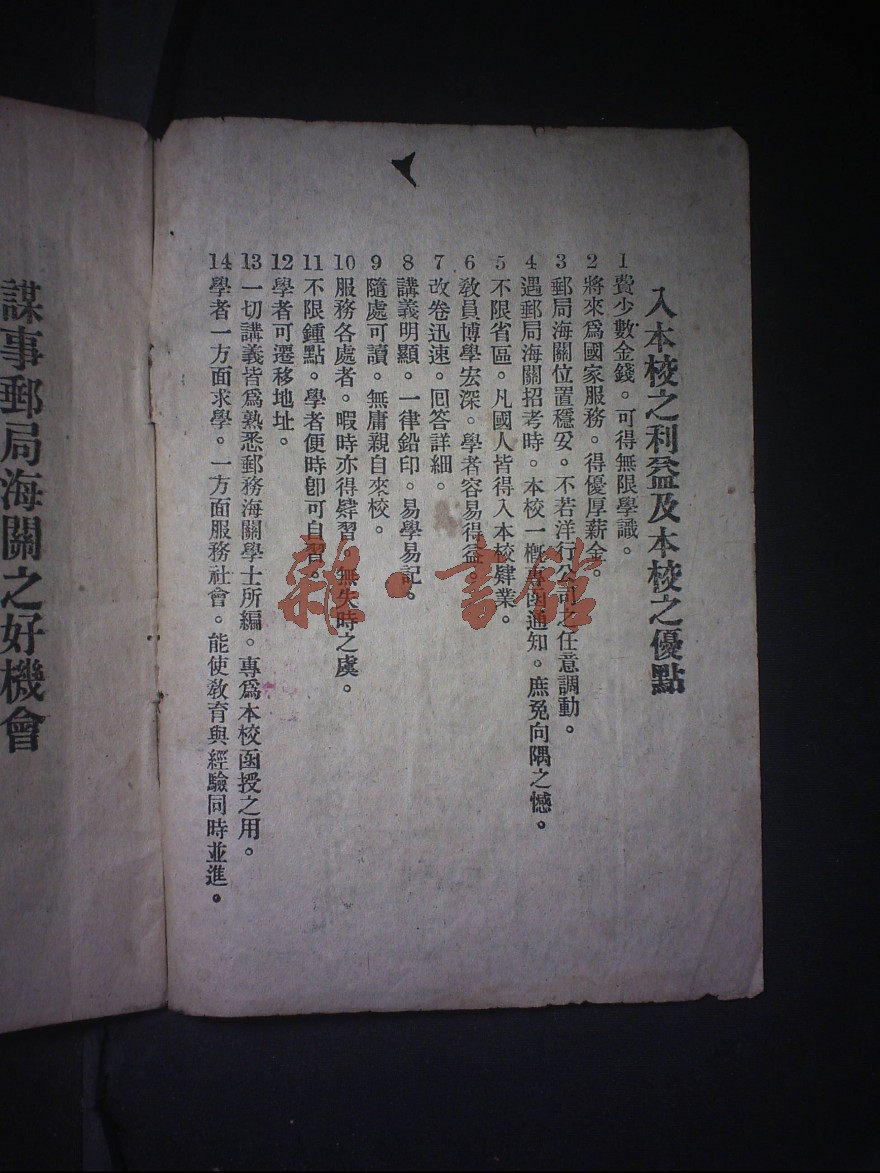 入本校之利益及本校之優點
1 費少數金錢。可得無限學識。
2 將來爲國家服務。得優厚薪金。
3 郵局海關位置穩妥。不若洋行公司之任意調動。
4 遇郵局海關招考時。本校一槪專函通知。庶免向隅之憾。
5 不限省區。凡國人皆得入本校肄業。
6 敎員博學宏深。學者容易得益
7 改卷迅速。回答詳細。
8 講義明顯。一律鉛印。易學易記。
9 隨處可讀。無庸親自來校。
10 服務各處者。暇時亦得肄習。無失時之虞。
11 不限鍾點。學者便時卽可自習。
12 學者可遷移地址。
13 一切講義皆爲熟悉郵務海關學士所編。專爲本校函授之用。
14 學者一方面求學。一方面服務社會。能使敎育與經驗同時並進。
謀事郵局海關之好機會
雜·書館